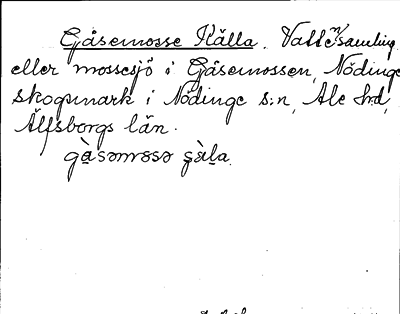 Gåsemosse Källa. Vattensamling
eller mossesjö i Gåsemossen, Nödinge
skogsmark i Nödinge s:n, Ale hd,
Älfsborgs län.
gàsəmɤsə ʂàla.